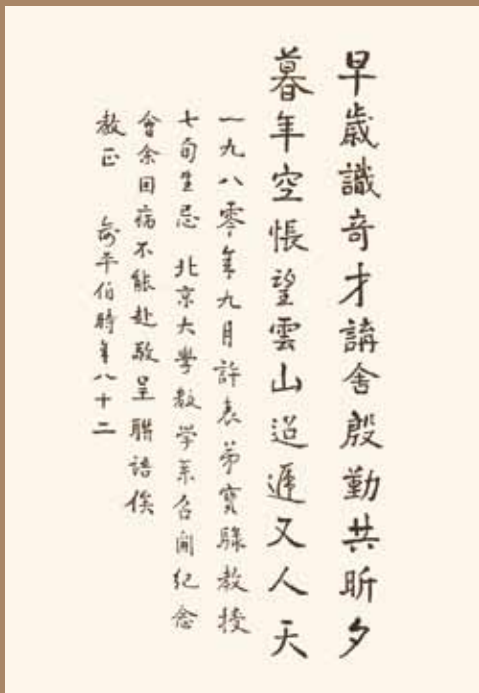 早歲識奇才講舍殷勤共昕夕
暮年空悵望雲山迢遞又人天
一九八零年九月許表弟寶騄教授
七旬生忌 北京大學数学系召開纪念
會余因病不能赴敬呈聯語俟
教正 俞平伯時年八十二